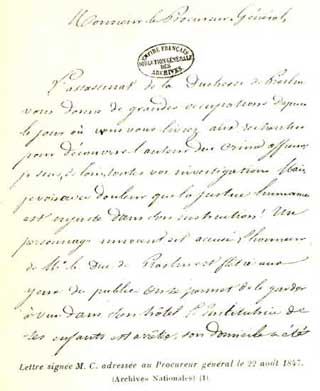 Monsieur le Procureur Général,
EMPIRE FRANÇAIS
DES
ARCHIVES
L'assassinat de la Duchesse de Praslin
vous donne de grandes occupations depuis
le jour où vous vous livrez aux recherches
pour découvrir l'auteur du Crime affreux
je suis, de loin, toutes vos investigations Mais
je vois avec douleur que la justice humaine
est dans son instruction! Un
personnage innocent est accusé l'honneur
de Mr. le Duc de Praslin est flétri aux
yeux du public on se permet de le garder
à vue dans son hôtel l'Institutrice de
ses enfants est arrêtée, son domicile a été
Lettre signée M. C. adressée au Procureur général le 22 août 1847.
(Archives Nationales) (1).